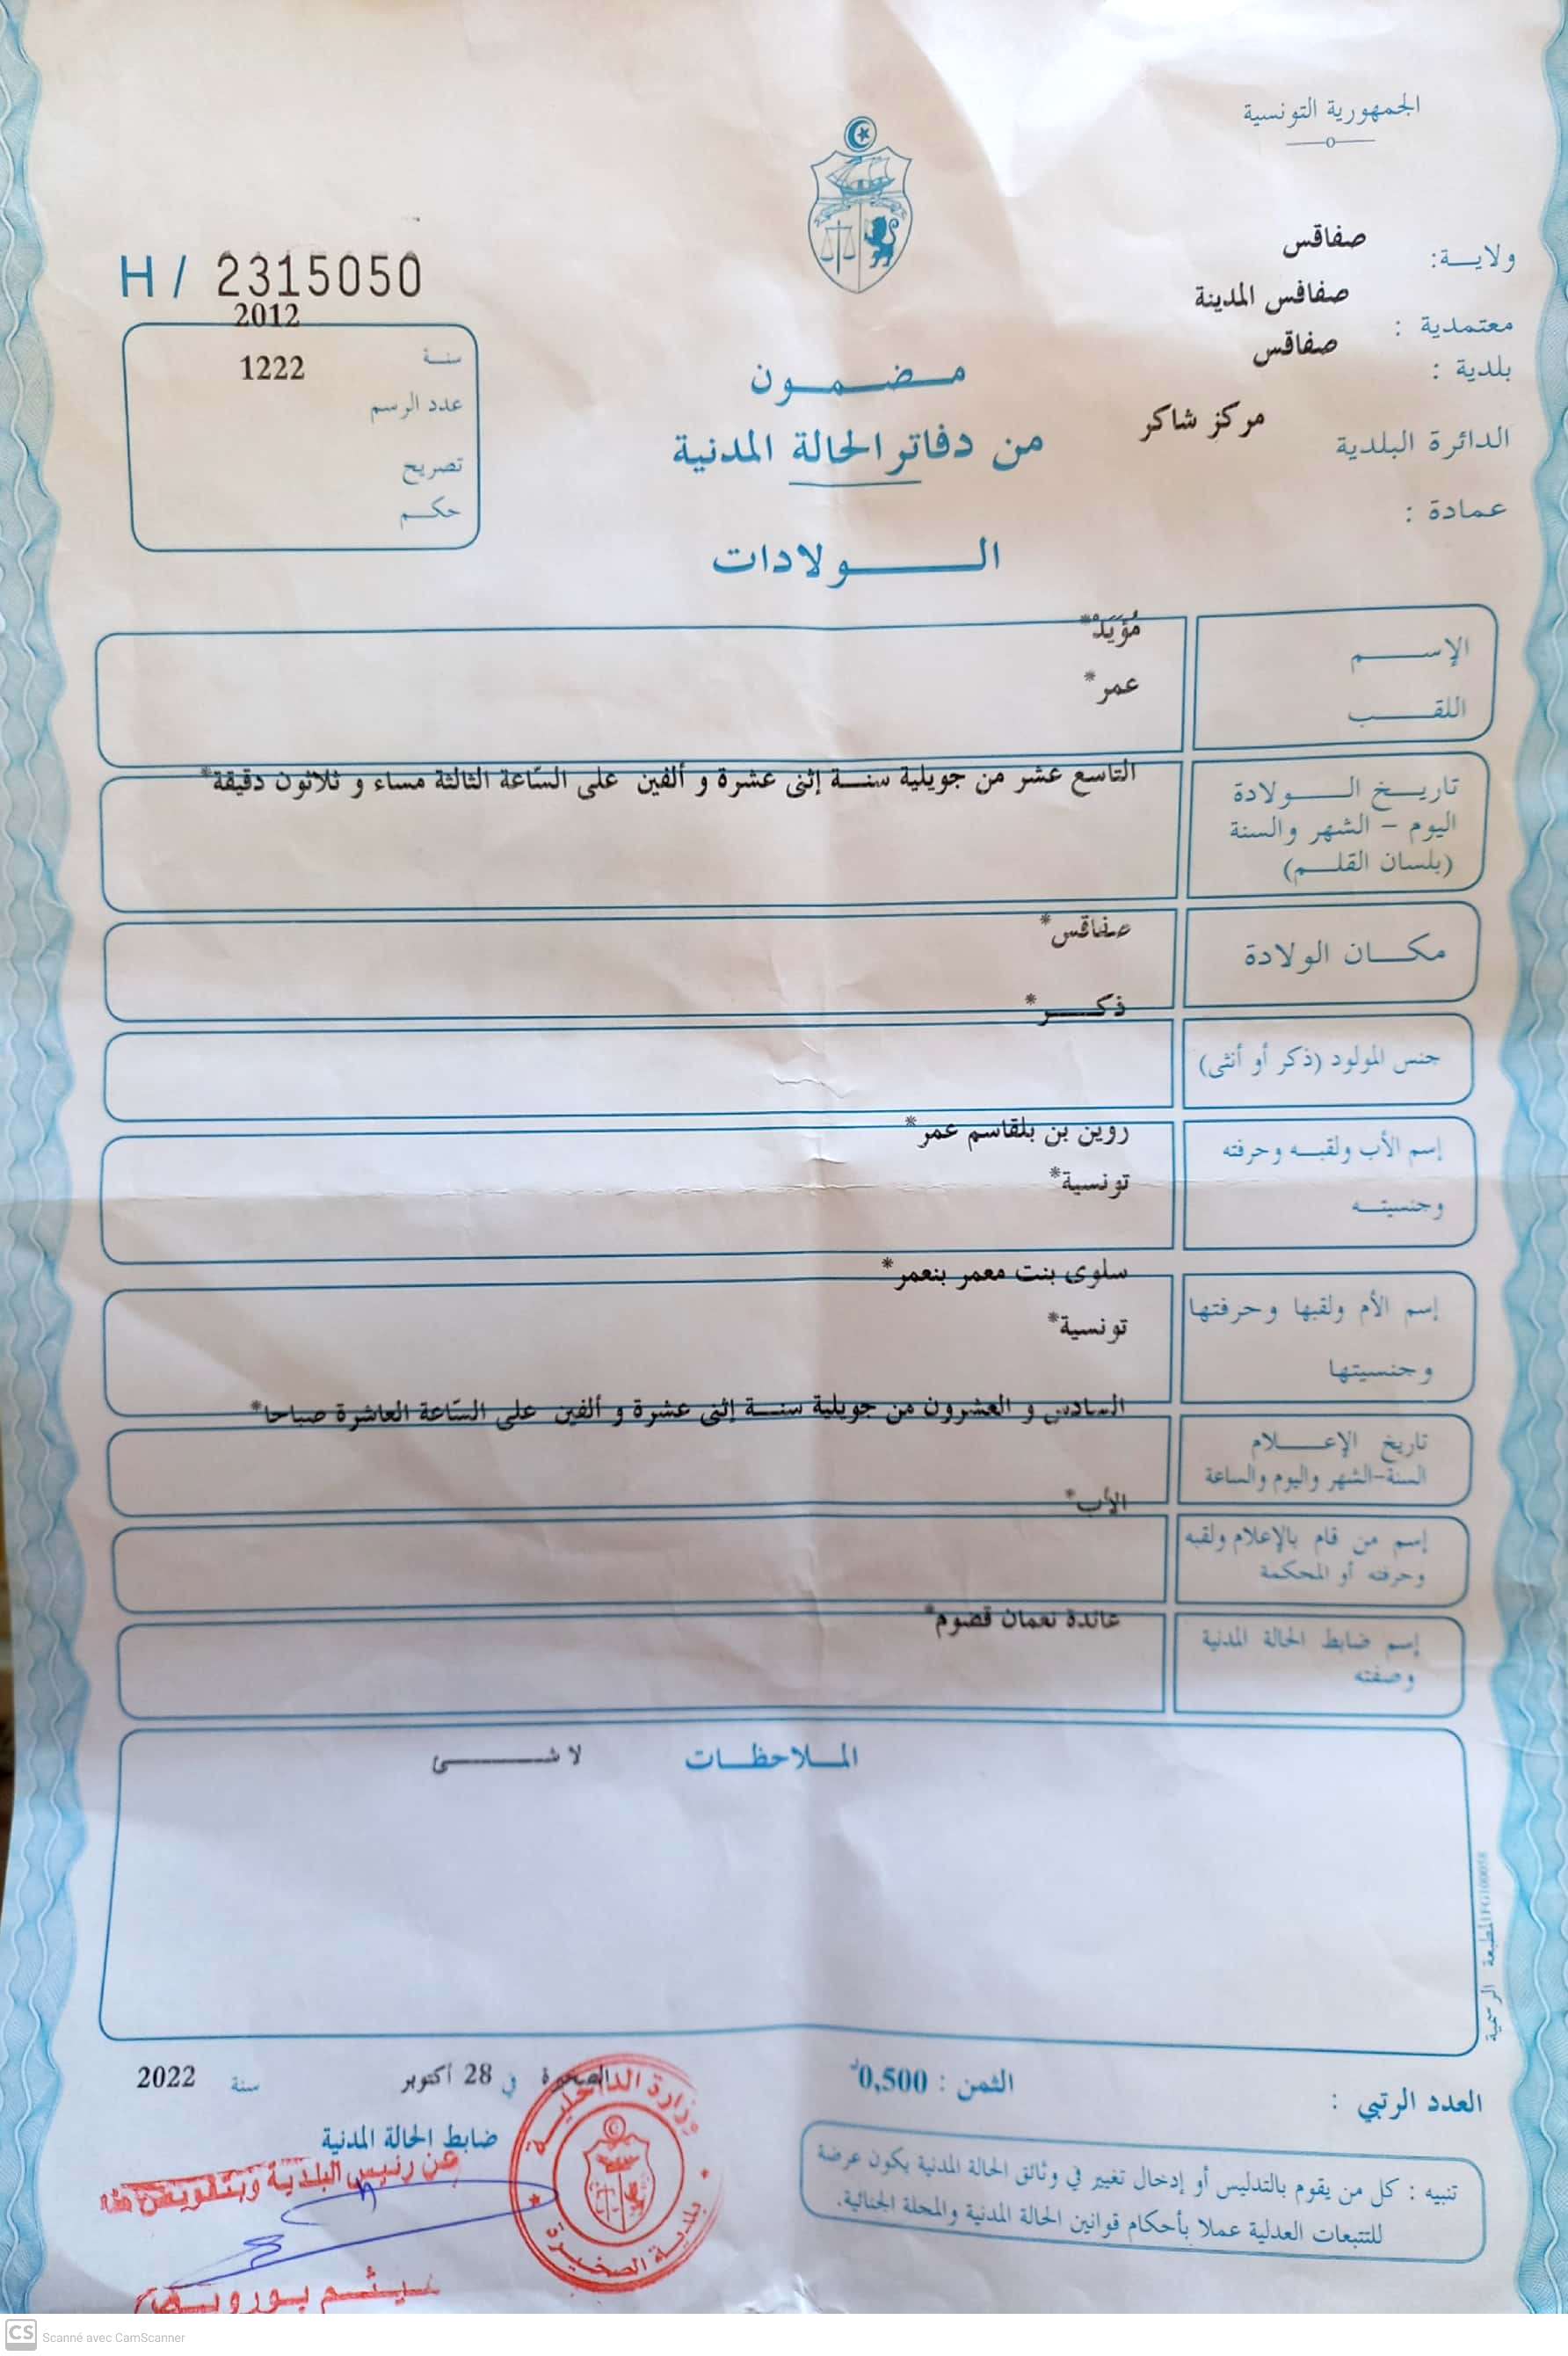 الجمهورية التونسية
ولايـــة: صفاقس
معتمدية : صفاقس المدينة
بلدية : صفاقس
الدائرة البلدية مركز شاكر
عمادة :
H / 2315050
2012
سنــة
1222
عدد الرسم
تصريح
حكــم
مـضـمـون
من دفاتر الحالة المدنية
الـــــولادات
الإســــم مُؤَيَدْ*
اللقــــب عمر*
تاريــخ الـــولادة التاسع عشر من جويلية سنــة إثنى عشرة و ألفين على السّاعة الثالثة مساء و ثلاثون دقيقة*
اليوم – الشهر والسنة
(بلسان القلــم)
مكـــان الولادة صفاقس*
ذكـــر*
جنس المولود (ذكر أو أنثى)
إسم الأب ولقبــه وحرفته روين بن بلقاسم عمر*
وجنسيتــه تونسية*
سلوى بنت معمر بنعمر*
إسم الأم ولقبها وحرفتها
وجنسيتها تونسية*
السادس و العشرون من جويلية سنــة إثنى عشرة و ألفين على السّاعة العاشرة صباحا*
تاريخ الإعــــلام
السنة-الشهر واليوم والساعة
الأب*
إسم من قام بالإعلام ولقبه
وحرفته أو المحكمة
عائدة نعمان قضوم*
إسم ضابط الحالة المدنية
وصفته
المـلاحظـات لا شـــــئ
المطبعة الرسمية
العدد الرتبي :
الثمن : 0,500د
الصخيرة في 28 أكتوبر سنة 2022
ضابط الحالة المدنية
عن رئيس البلدية وبتفويض منه
وزارة الداخليـة
بلديـة الصخيـرة
تنبيه : كل من يقوم بالتدليس أو إدخال تغيير في وثائق الحالة المدنية يكون عرضة
للتتبعات العدلية عملا بأحكام قوانين الحالة المدنية والمجلة الجنائية.
CS Scanné avec CamScanner